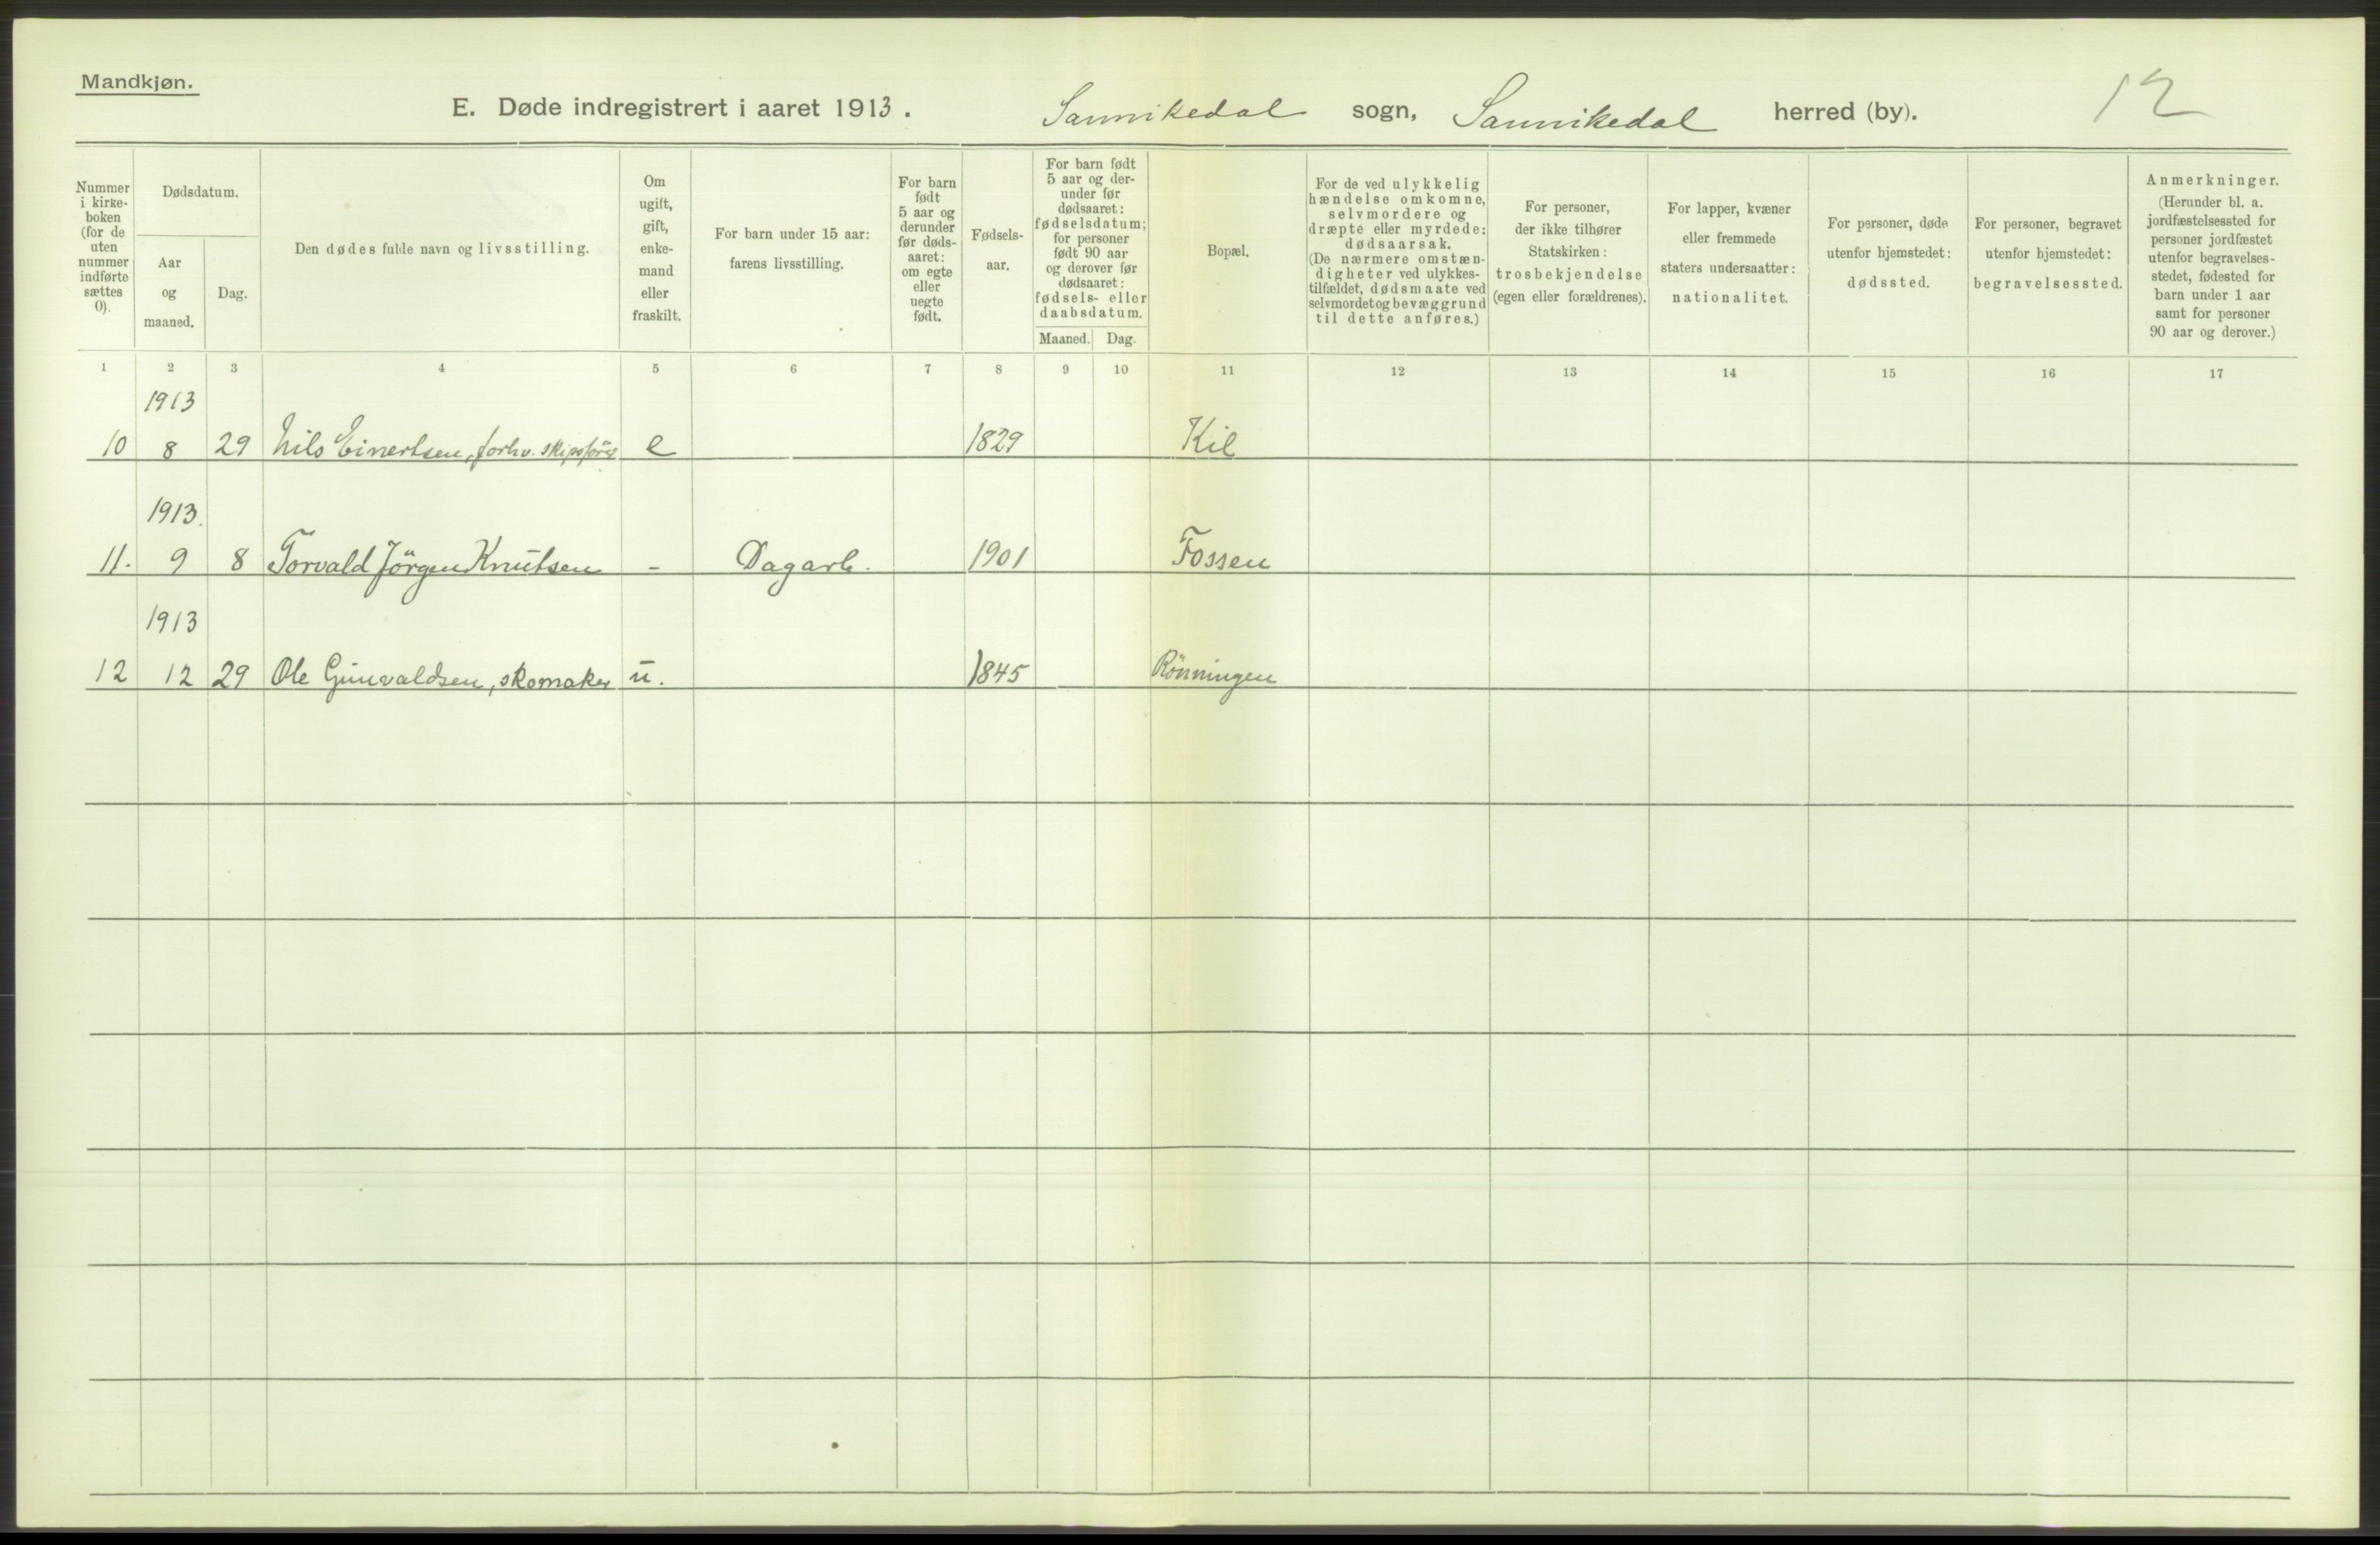 Mandkjøn.
E. Døde indregistrert i aaret 1913. Sannikedal sogn, Sannikedal herred (by). 12
Nummer
i kirke-
boken
(for de
uten
nummer
indførte
sættes
0).
Dødsdatum.
Aar
og
maaned.
Dag.
Den dødes fulde navn og livsstilling.
Om
ugift,
gift,
enke-
mand
eller
fraskilt.
For barn under 15 aar:
farens livsstilling.
For barn
født
5 aar og
derunder
før døds-
aaret:
om egte
eller
uegte
født.
Fødsels-
aar.
For barn født
5 aar og der-
under før
dødsaaret:
fødselsdatum;
for personer
født 90 aar
og derover før
dødsaaret:
fødsels- eller
daabsdatum.
Maaned. Dag.
Bopæl.
For de ved ulykkelig
hændelse omkomne,
selvmordere og
dræpte eller myrdede:
dødsaarsak.
(De nærmere omstæn-
digheter ved ulykkes-
tilfældet, dødsmaate ved
selvmordet og bevæggrund
til dette anføres.)
For personer,
der ikke tilhører
Statskirken:
trosbekjendelse
(egen eller forældrenes).
For lapper, kvæner
eller fremmede
staters undersaatter:
nationalitet.
For personer, døde
utenfor hjemstedet:
dødssted.
For personer, begravet
utenfor hjemstedet:
begravelsessted.
Anmerkninger.
(Herunder bl. a.
jordfæstelsessted for
personer jordfæstet
utenfor begravelses-
stedet, fødested for
barn under 1 aar
samt for personer
90 aar og derover.)
1 2 3 4 5 6 7 8 9 10 11 12 13 14 15 16 17
1913
10 8 29 Nils Einertsen, forhv. skipsförer e 1829 Kil
1913.
11. 9 8 Torvald Jörgen Knutsen - Dagarb. 1901 Fossen
1913
12 12 29 Ole Gunvaldsen, skomaker u. 1845 Rönningen